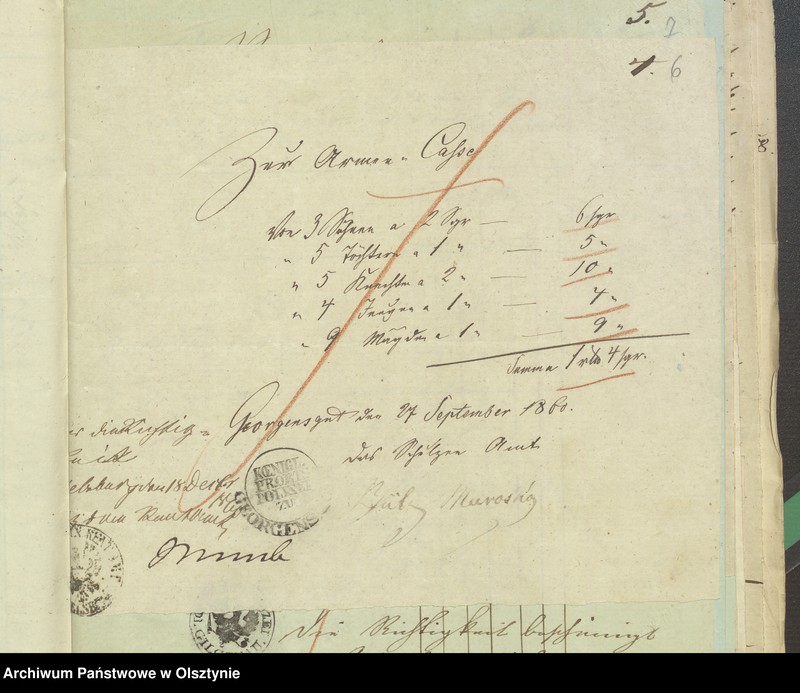 5. 7
4. 6
Zur Armen-Casse
Von 3 Söhnen a 2 Sgr — 6 sgr
" 5 Töchtern a 1 " — 5 "
" 5 Knechten a 2 " — 10 "
" 4 Jungen a 1 " — 4 "
" 9 Mägden a 1 " — 9 "
Summa 1 rtl 4 sgr.
Georgensgut den 27 September 1860.
das Schulzen Amt
die Richtigkeit
den 18 Decbr
1860
KOENIGL.
PREUSS.
POLIZEI
ZU
GEORGENS
Die Richtigkeit bescheinigt
Archiwum Państwowe w Olsztynie